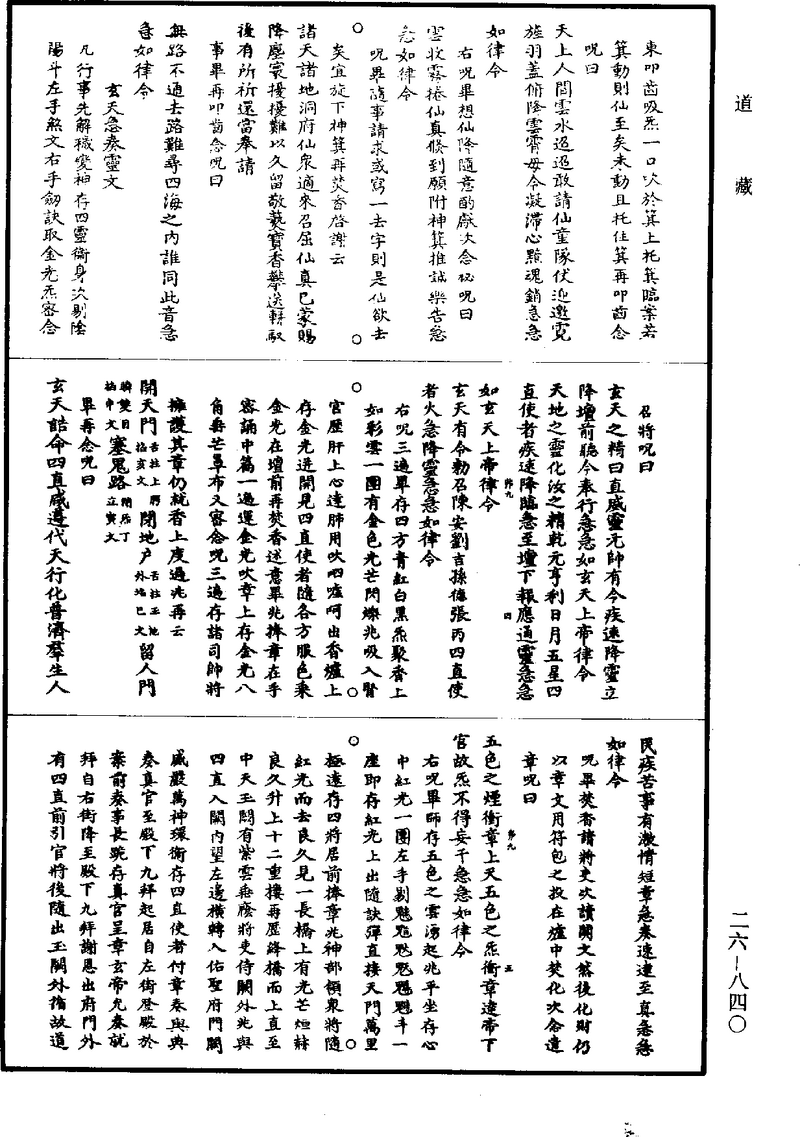 道藏
東叩齒吸炁一口吹於箕上托箕臨案若
箕動則仙至矣未動且托住箕再叩齒念
呪曰
天上人間雲水迢迢敢請仙童隊伏迎邀霓
旌羽蓋俯降雲霄毋令凝滯心黯魂銷急急
如律令
右呪畢想仙降隨意酌獻次念祕呪曰
雲收霧捲仙真倐到願附神箕推誠樂告急
急如律令
呪畢隨事請求或寫一去字則是仙欲去
矣宜旋下神箕再焚香啓謝云
諸天諸地洞府仙衆適來召屈仙真已蒙賜
降塵寰擾擾難以久留敬爇寳香攀送軿馭
後有所祈還當奉請
事畢再叩齒念呪曰
無路不通去路難尋四海之內誰同此音急
急如律令
玄天急奏靈文
凡行事先解穢變神存四靈衛身次剔陰
陽斗左手煞文右手劒訣取金光炁密念
召將呪曰
玄天之精曰直威靈元帥有令疾速降靈立
降壇前聽令奉行急急如玄天上帝律令
天地之靈化汝之精乾元亨利日月五星四
直使者疾速降臨急至壇下報應通靈急急
如玄天上帝律令
玄天有令勅召陳安劉吉孫德張丙四直使
者火急降靈急急如律令
右呪三遍畢存四方青紅白黑炁聚香上
如彩雲一團有金色光芒閃爍兆吸入腎
宮歷肝上心達肺用吹呬嘘呵出香爐上
存金光迸開見四直使者隨各方服色乘
金光在壇前再焚香述意畢兆捧章在手
密誦中篇一遍運金光吹章上存金光八
角垂芒罩布又密念呪三遍存諸司帥將
擁護其章仍就香上度過兆再云
開天門舌拄上腭掐亥文閉地户舌拄玉池外掐巳文留人門
瞬雙目掐申文塞鬼路閉後丁立寅文
畢再念呪曰
玄天誥命四直咸遵代天行化普濟羣生人
民疾苦事有激情短章急奏速達至真急急
如律令
呪畢焚香請將吏次讀關文然後化財仍
以章文用符包之投在爐中焚化次念遣
章呪曰
五色之煙衝章上天五色之炁衝章達帝下
官故炁不得妄干急急如律令
右呪畢師存五色之雲湧起兆平坐存心
中紅光一團左手剔魁䰢魓魒斗一
座即存紅光上出隨訣彈直接天門萬里
極遠存四將居前捧章兆神部領衆將隨
紅光而去良久見一長橋上有光芒烜赫
良久升上十二重樓再歷絳橋而上直至
中天玉闕有紫雲垂廕將吏侍闕外兆與
四直入闕內望左邊橫轉入佑聖府門闕
威嚴萬神環衛存四直使者付章奏與典
奏真官至殿下九拜起居自左街登殿於
案前奏事長跪存真官呈章玄帝允奏就
拜自右街降至殿下九拜謝恩出府門外
有四直前引官將後隨出玉闕外循故道
二六—八四〇